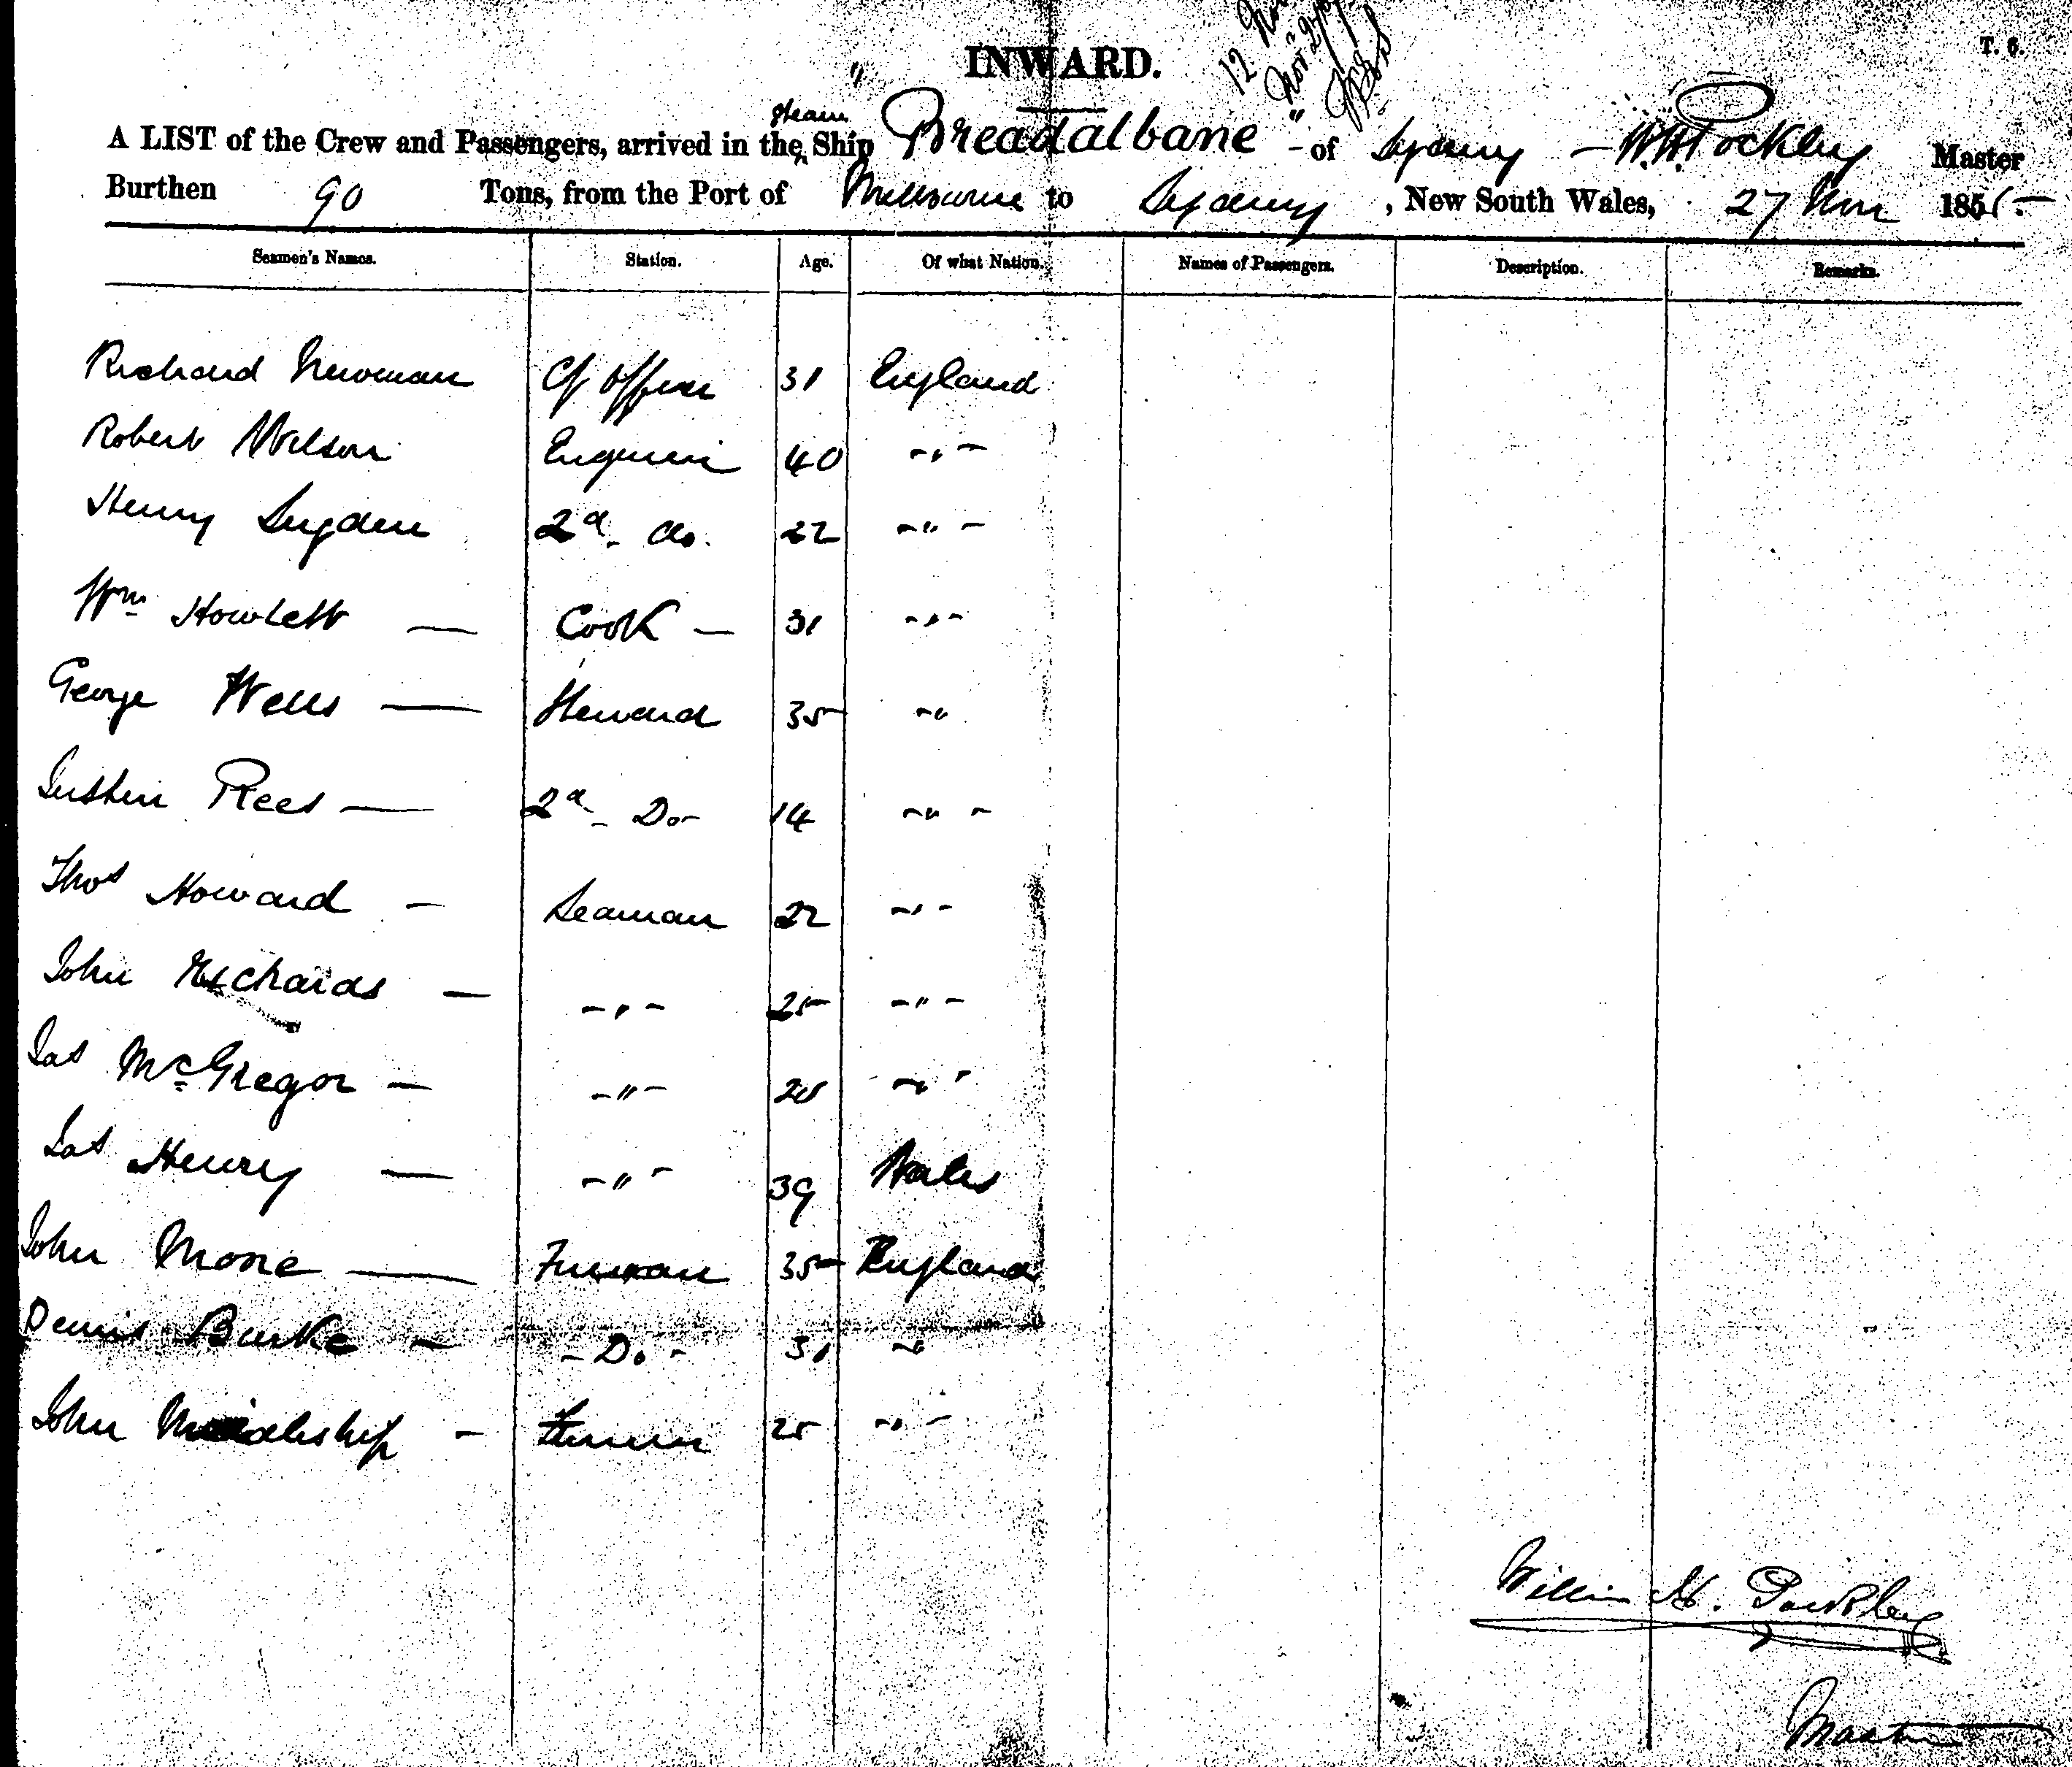 INWARD.
T. 6.
A LIST of the Crew and Passengers, arrived in the steam Ship "Breadalbane" of Sydney - W. H. Pockley Master
Burthen 90 Tons, from the Port of Melbourne to Sydney, New South Wales, 27 Nov 1855
Seamen's Names. Station. Age. Of what Nation. Names of Passengers. Description. Remarks.
Richard Newman Cf Officer 31 England
Robert Wilson Engineer 40 - " -
Henry Sugden 2d do. 22 - " -
Wm Howlett — Cook — 31 - " -
George Wells — Steward 35 - "
Rees — 2d - Do - 14 - " -
Thos Howard — Seaman 22 - " -
John Richards — - " - 25 - " -
Jas McGregor — - " - - " -
Jas Henry — - " - 39 Wales
John Moore — Fireman 35 England
Dennis Burke — - Do - 31 - "
John - 25 - " -
William H. Pockley
Master